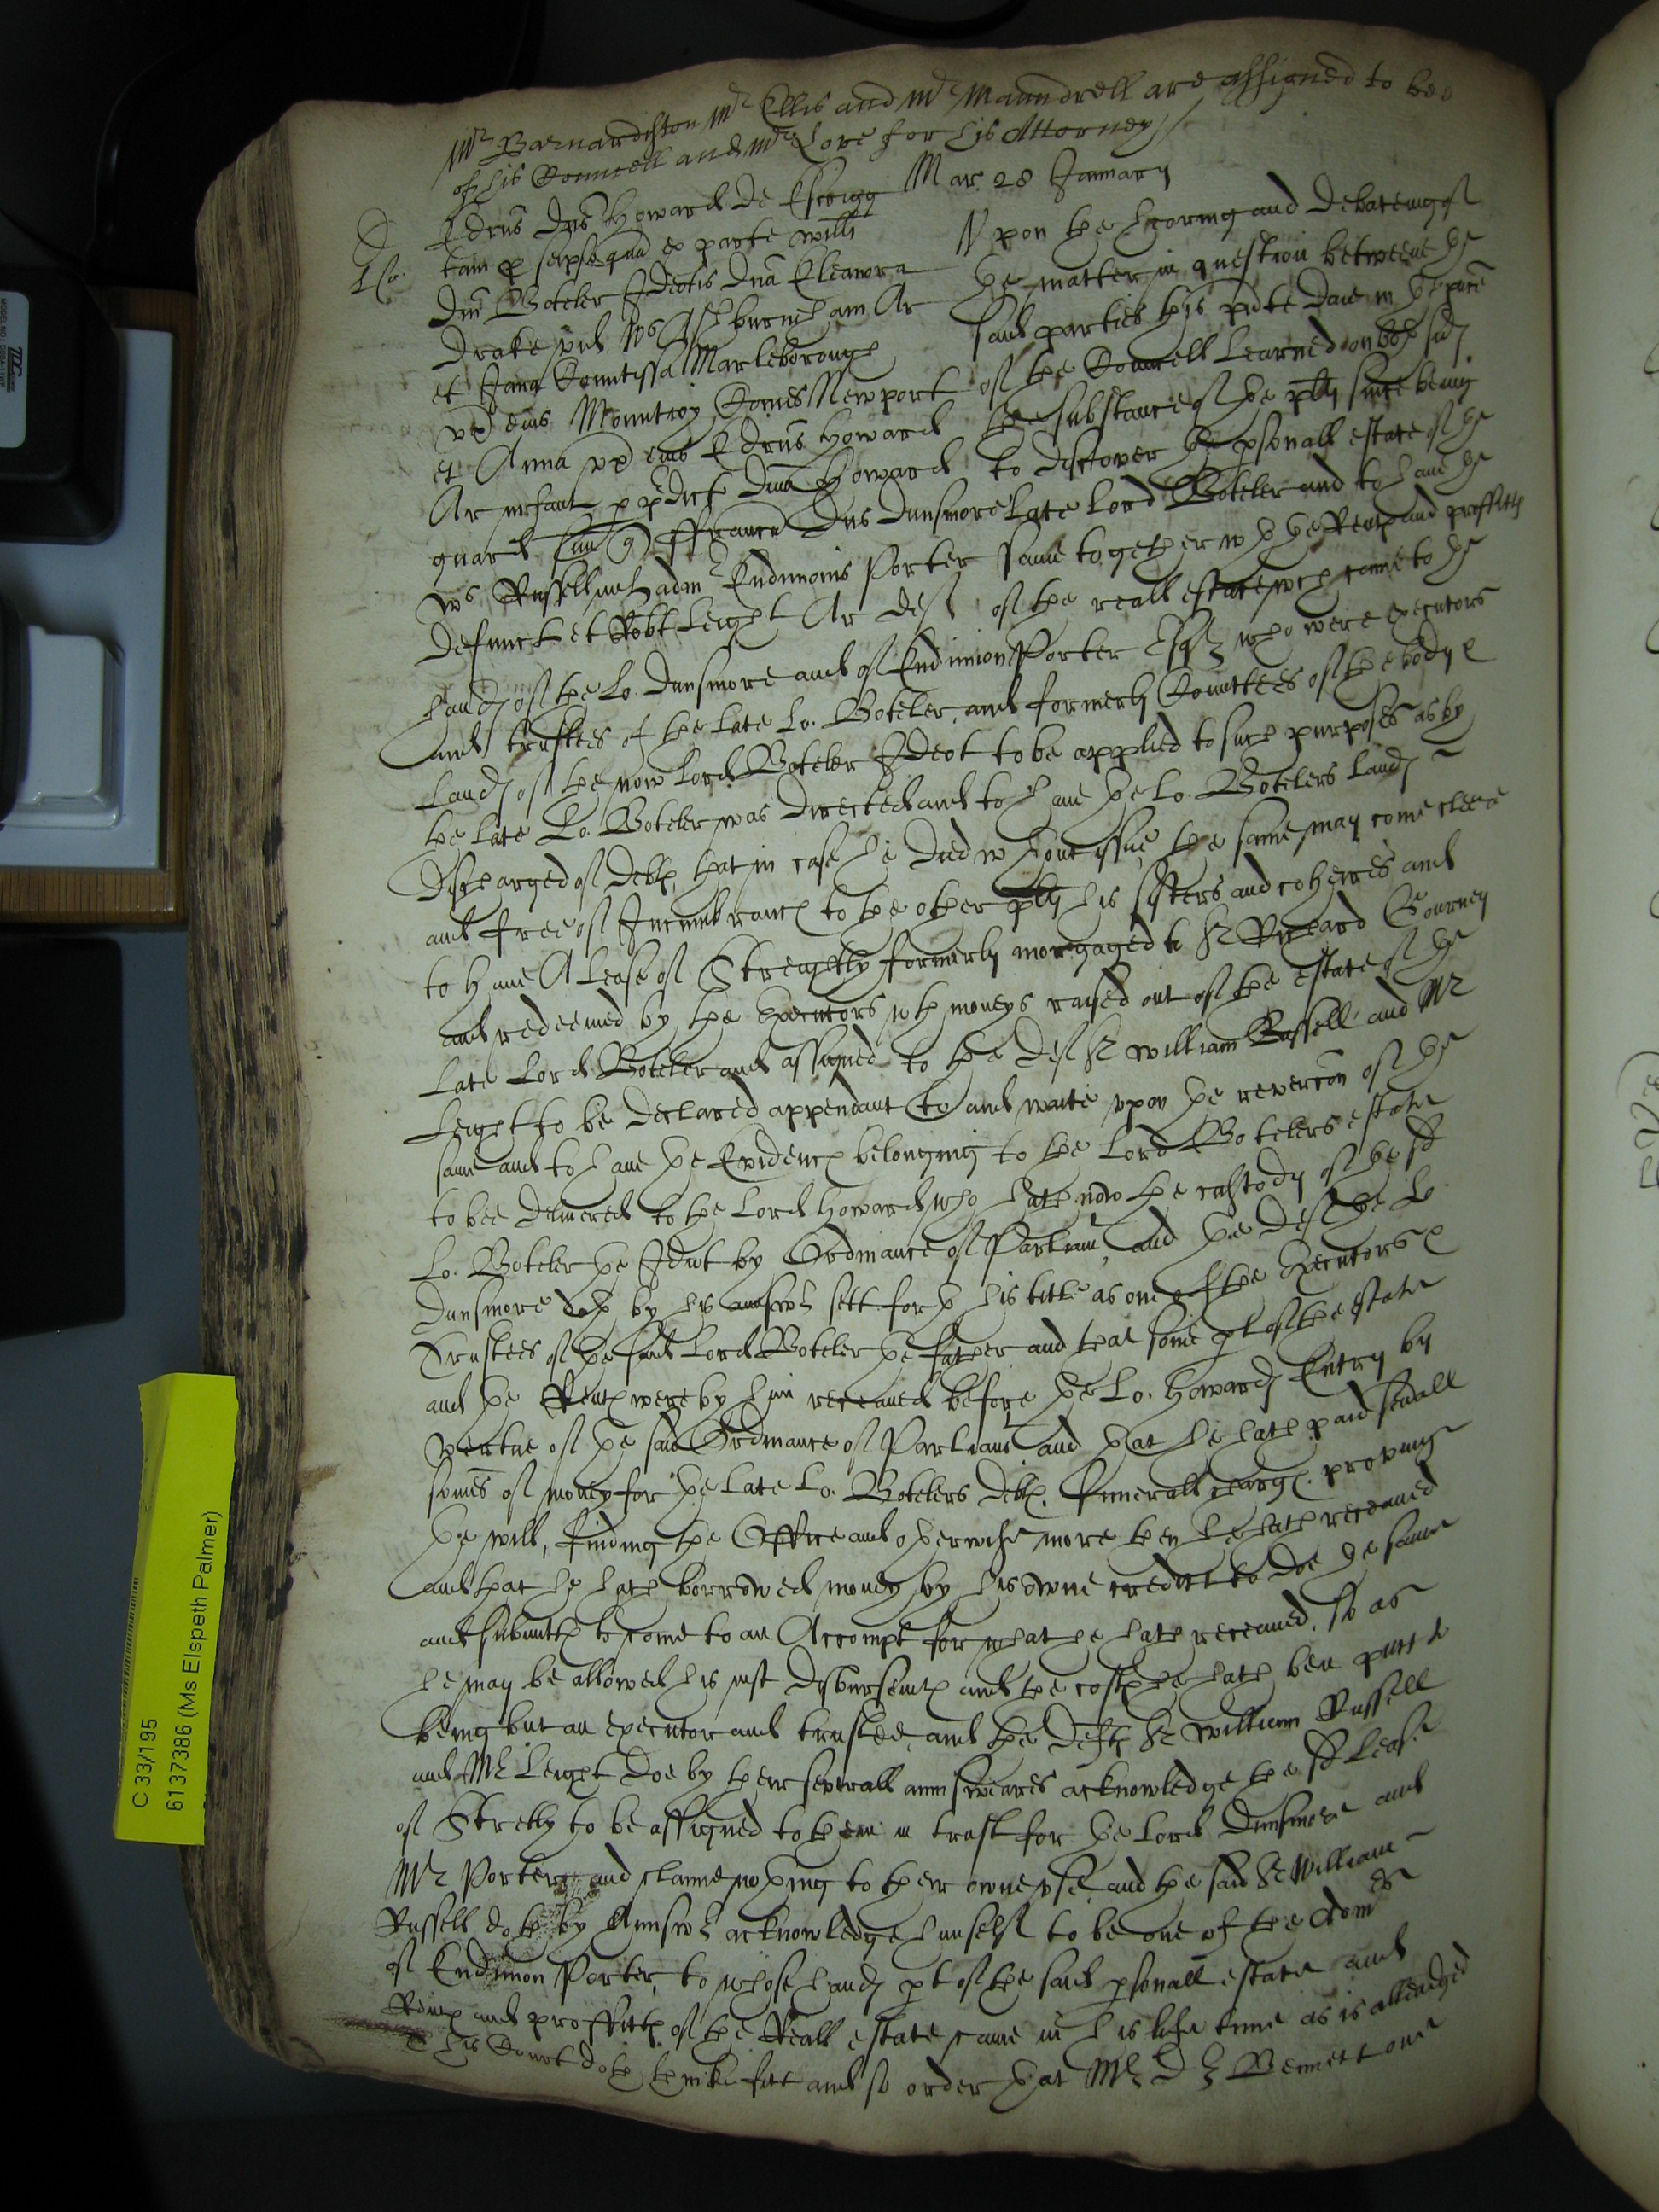 Mr Barnardiston Mr Ellis and Mr Maundrell are assigned to bee
of his Councell and Mr Lore for his Attorney
Mar 28 January
Edrus Dns Howard de Escrigg
tam p seipso qua ex parte Willi Upon the hearing and debateing of
Dni Boteler Ideotis Dna Eleanora the matter in question betweene the
Drake vid Ws Ashburnham Ar said parties this pnte daie in the pnce
et Jana Countissa Marleborough of the Councell Learned on both sids
ux eius Mountioy Comes Newport the substance of the plts suite being
et Anna ux eius Edrus Howard to discover the psonall estate of the
Ar infant p pdict Dnm Howard Late Lord Boteler and to have the
guard ffranc Dns Dunsmore same together wth the Rents and proffitts
Ws Russell adm Endimonis Porter of the reall estate wch came to the
defunct et Robt Leight Ar def
hands of the Lo. Dunsmore and of Endimion Porter Esqr who were executors
and trustees of the late Lo. Boteler, and formerly Comittees of the body &
Lands of the now Lord Boteler Ideot to be applied to such purposes as by
the late Lo. Boteler was directed and to have the Lo. Botelers Lands
discharged of debts, that in case he died wthout issue the same may come cleere
and free of Incumbrancs to the other plts his sisters and coheires and
to have A Lease of Streightly formerly morgaged to Sr Richard Gourney
and redeemed by the Executors wth moneys raised out of the estate of the
late Lord Boteler and assigned to the def Sr William Russell and Mr
Leight to be declared appendant to and waite upon the revercon of the
same and to have the Evidencs belonging to the Lord Botelers estate
to bee delivered to the Lord Howard who hath now the custody of the sd
Lo. Boteler the Ideot by Ordinance of Parliamt and the def the Lo.
Dunsmore doth by his answr sett forth his title as one of the Executors &
Trustees of the said Lord Boteler the father and that some pt of the estate
and the Rents were by him receaved before the Lo. Howards Entry by
vertue of the said Ordinance of Parliamt and that he hath paid seuall
somes of money for the late Lo. Botelers debts, funerall chargs, proving
the will, finding the Office and otherwise more then he hath receaved
and that he hath borrowed money by his owne creditt to doe the same
and submitts to come to an Accompt for what he hath receaved, so as
he may be allowed his just disbursemts and the costs he hath ben putt to
being but an executor and trustee, and the defts Sr William Russell
and Mr Leight doe by their severall aunsweares acknowledge the sd Lease
of Stretly to be assigned to them in trust for the Lord Dunsmore and
Mr Porter, and claime nothing to their owne use, and the said Sr William
Russell doth by Aunswr acknowledge himself to be one of the Admrs
of Endimon Porter, to whose hands pt of the said psonall estate and
Rents and proffitts of the Reall estate came in his life time as is alleadged
this Court doth thinke fitt and so order that Mr Dr Bennett one
C 33/195
6137386 (Ms Elspeth Palmer)